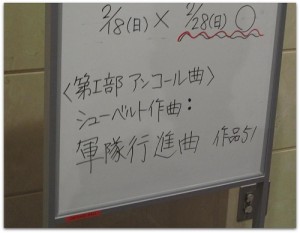 2/18(日) × 2/28(日) ○
〈第I部 アンコール曲〉
シューベルト作曲:
軍隊行進曲 作品51